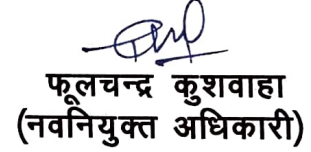 फूलचन्द्र कुशवाहा
(नवनियुक्त अधिकारी)